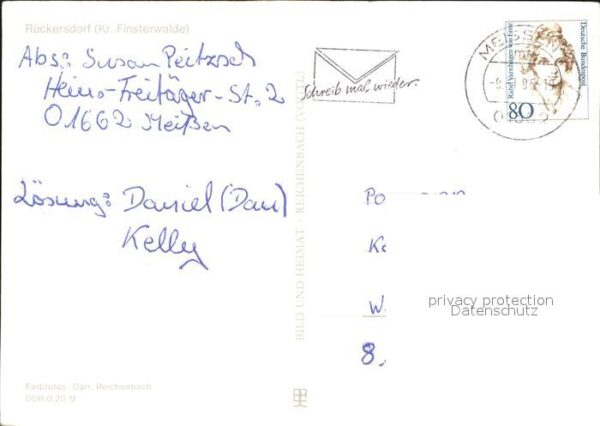 Rückersdorf (Kr. Finsterwalde)
Abs.: Susan Peitzsch
Heino-Freitäger-St. 2
O1662 Meißen
Lösung: Daniel (Dan)
Kelly
Farbfotos: Darr, Reichenbach
DDR 0,20 M
BILD UND HEIMAT · REICHENBACH (VOGTL)
Schreib mal wieder.
MEISSEN
Deutsche Bundespost
Rahel Varnhagen von Ense
80
Po
Ke
W
8
privacy protection
Datenschutz